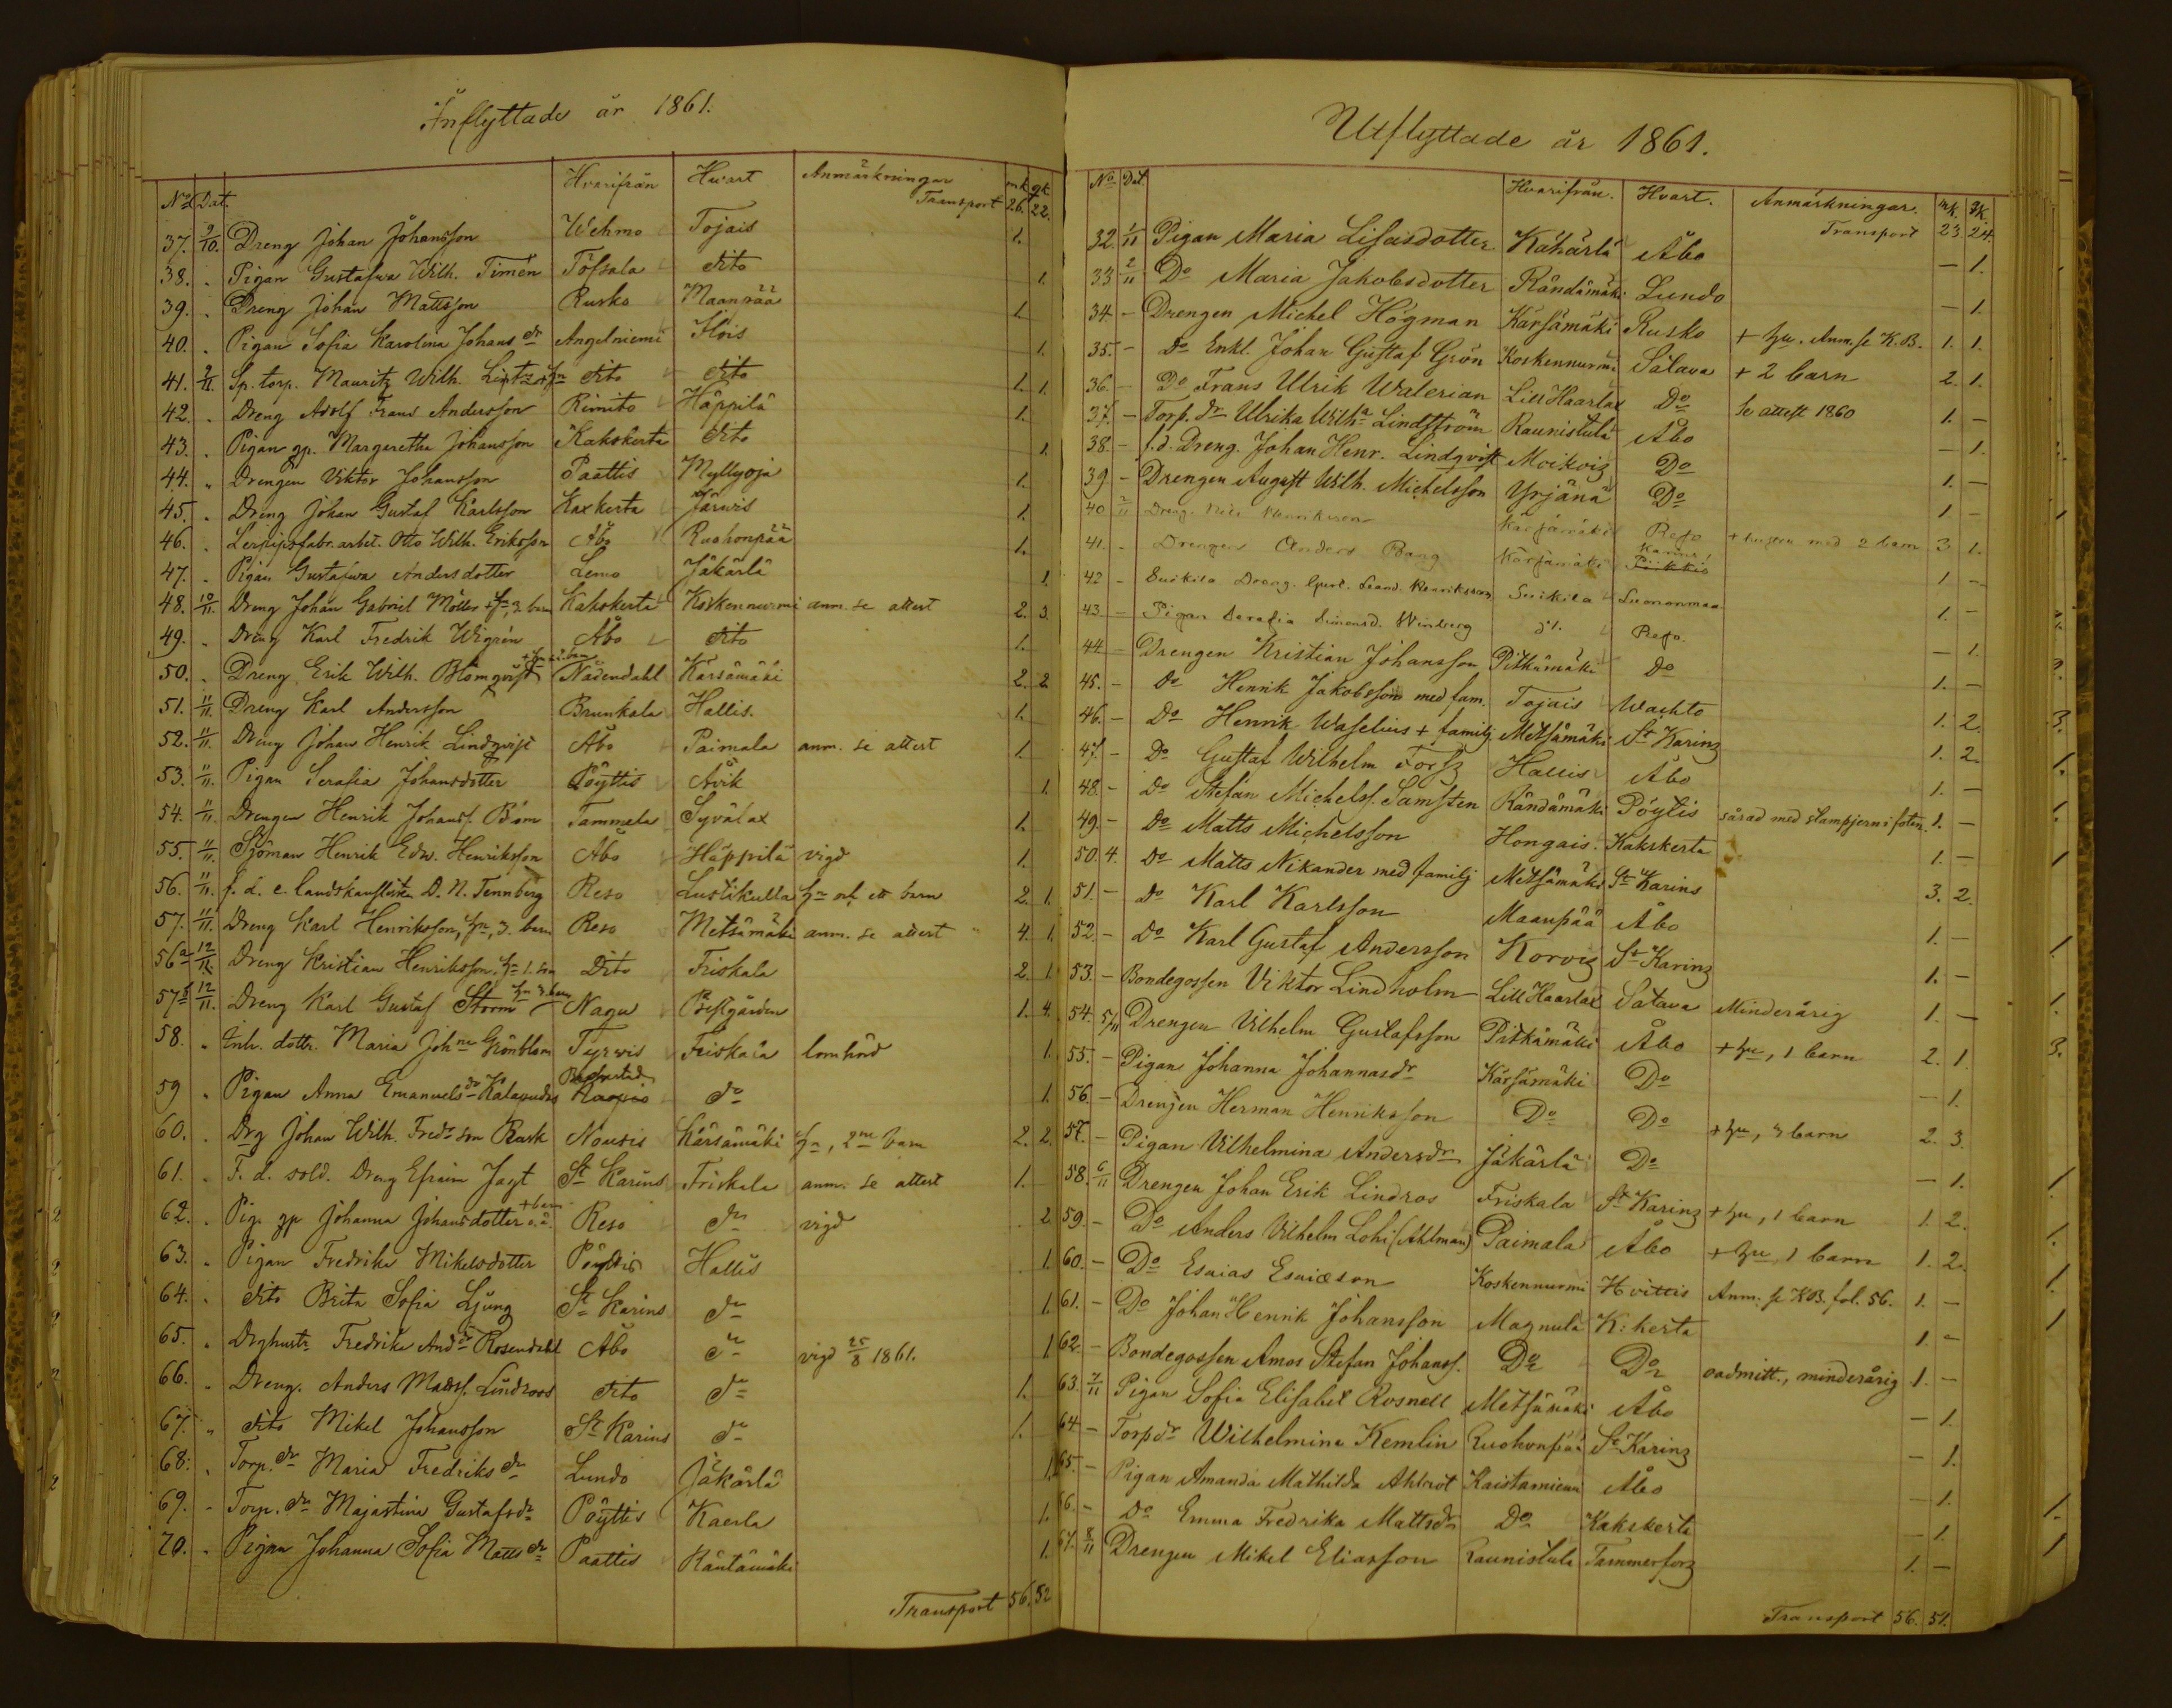 Inflyttade år 1861.
No Dat. Hvarifrån Hvart Anmärkningar mk. qk.
Transport 26. 22.
37. 9/10. Dreng Johan Johansson Wehmo Tojais 1.
38. . Pigan Gustafva Wilh. Timén Töfsala dito 1.
39. . Dreng Johan Mattsson Rusko Maanpää 1.
40. . Pigan Sofia Karolina Johans dr Angelniemi Ilois 1.
41. 9/11. Sp. torp. Mauritz Wilh. dito dito 1. 1.
42. . Dreng Adolf Frans Andersson Rimito Häppilä 1.
43. . Pigan gp. Margaretha Johansson Kakskerta dito 1.
44. " Drengen Viktor Johansson Paattis Myllyoja 1.
45. . Dreng Johan Gustaf Karlsson Kaxkerta Järvis 1.
46. . Lerpipsfabr. arbet. Otto Wilh. Eriksson Åbo Ruohonpää 1.
47. . Pigan Gustafwa Andersdotter Lemo Jäkärlä 1.
48. 10/11. Dreng Johan Gabriel Möller + hu, 3 barn Kakskerta Koskennurmi anm. se attest 2. 3.
49. . Dreng Karl Fredrik Wigrén Åbo dito 1.
50. . Dreng Erik Wilh. Blomqvist Nådendahl Kärsämäki 2. 2.
51. 11/11. Dreng Karl Andersson Brunkala Hallis. 1.
52. 11/11. Dreng Johan Henrik Lindqvist Åbo Paimala anm. se attest 1.
53. 11/11. Pigan Serafia Johansdotter Pöyttis Avik 1.
54. 11/11. Drengen Henrik Johanss. Böm Tammela Syvälax 1.
55. 11/11. Sjöman Henrik Edw. Henriksson Åbo Häppilä vigd 1.
56. 11/11. f. d. e. landskanslisten D. N. Tennberg Reso Lustikulla hu och ett barn 2. 1.
57. 11/11. Dreng Karl Henriksson, hu, 3. barn Reso Metsämäki anm. se attest 4. 1.
56a 12/11. Dreng Kristian Henriksson, hu 1. son Dito Friskala 2. 1.
57b 12/11. Dreng Karl Gustaf Storm hu 3 barn Nagu Prestgården 1. 4.
58. . Inh. dottr. Maria Joh:na Grönblom Tyrvis Friskala lomhörd 1.
59 . Pigan Anna Emanuels dr do 1.
60. . Drg Johan Wilh. Fredr. son Rask Nousis Kärsämäki hu, 2ne barn 2. 2.
61. . F. d. sold. Dreng Efraim Jagt St Karins Friskala anm. se attest 1.
62. . Pig. gp Johanna Johansdotter + barn Reso do vigd 2.
63. . Pigan Fredrika Mikelsdotter Pöyttis Hallis 1.
64. . dito Brita Sofia Ljung St Karins do 1.
65. . Drghustr. Fredrika And. dr Rosendahl Åbo do vigd 25/8 1861. 1
66. . Dreng. Anders Matss. Lindroos dito do 1.
67. " dito Mikel Johansson St Karins do 1.
68. . Torp. dr Maria Fredriks dr Lundo Jäkärlä 1.
69. - Torp. dr Majastina Gustafsdr Pöyttis Kaerla 1.
70. . Pigan Johanna Sofia Matts dr Paattis Räntämäki 1.
Transport 56. 52
Utflyttade år 1861.
No Dat. Hvarifrån. Hvart. Anmärkningar. mk. qk.
Transport 23. 24.
32. 1/11 Pigan Maria Lisasdotter Kähärlä Åbo — 1.
33 2/11 Do Maria Jakobsdotter Rändämäki Lundo — 1.
34 - Drengen Michel Högman Kärsämäki Rusko + hu. Anm. se K.B. 1. 1.
35. - Do Enkl. Johan Gustaf Grön Koskennurmi Satava + 2 barn 2. 1.
36. - Do Frans Ulrik Walerian Lill Haarlax Do Se attest 1860 1. —
37. - Torp. dr Ulrika Wilh:a Lindström Raunistula Åbo — 1.
38. - f. d. Dreng. Johan Henr. Lindqvist Moikois Do 1. —
39 - Drengen August Wilh. Michelsson Yrjänä Do 1 —
40 2/11 Dreng. Nils Henriksson Kärsämäki Reso + hustru med 2 barn 3 1.
41. - Drengen Anders Bang Kärsämäki Karins Piikkis 1 —
42 - Suikila Dreng. Gust. Leand. Henriksson Suikila Luononmaa 1. —
43 - Pigan Serafia Simonsd. Winberg Reso. — 1.
44 - Drengen Kristian Johansson Pitkämäki do 1. —
45. - do Henrik Jakobsson med fam. Tojais Wachto 1. 2.
46. - Do Henrik Waselius + familj Metsämäki St Karins 1. 2.
47. - Do Gustaf Wilhelm Forss Hallis Åbo 1. —
48. - Do Stefan Michelss. Samsten Rändämäki Pöytis sårad med stampjern i foten. 1. —
49. - Do Matts Michelsson Hongais. Kakskerta 1. —
50. 4. Do Matts Nikander med familj Metsämäki St Karins 3. 2.
51 - do Karl Karlsson Maanpää Åbo 1. —
52 - Do Karl Gustaf Andersson Korvis St Karins 1. —
53. - Bondegossen Viktor Lindholm Lill Haarlax Satava Minderårig 1. —
54. 5/11 Drengen Vilhelm Gustafsson Pitkämäki Åbo + hu, 1 barn 2. 1.
55. - Pigan Johanna Johannasdr Kärsämäki Do — 1.
56. - Drengen Herman Henriksson Do Do + hu, 3 barn 2. 3.
57. - Pigan Vilhelmina Andersdr Jäkärlä Do — 1.
58. 6/11 Drengen Johan Erik Lindros Friskala St Karins + hu, 1 barn 1. 2.
59. - Do Anders Vilhelm Lohi (Ahlman) Paimala Åbo + hu 1 barn 1. 2.
60. - Do Esaias Esaieson Koskennurmi Hvittis Anm. se KB. fol. 56. 1. —
61. - Do Johan Henrik Johansson Magnula K: kerta 1. —
62 - Bondegossen Amos Stefan Johanss. Do Do oadmitt., minderårig 1. —
63. 7/11 Pigan Sofia Elisabet Rosnell Metsämäki Åbo — 1.
64 - Torpdr Wilhelmina Kemlin Ruohonpää St Karins — 1.
65. - Pigan Amanda Mathilda Ahlrot Raistamiemi Åbo — 1.
66. - Do Emma Fredrika Mattsdr Do Kakskerta — 1.
67. 8/11 Drengen Mikel Eliasson Raunistula Tammerfors 1. —
Transport 56. 51.